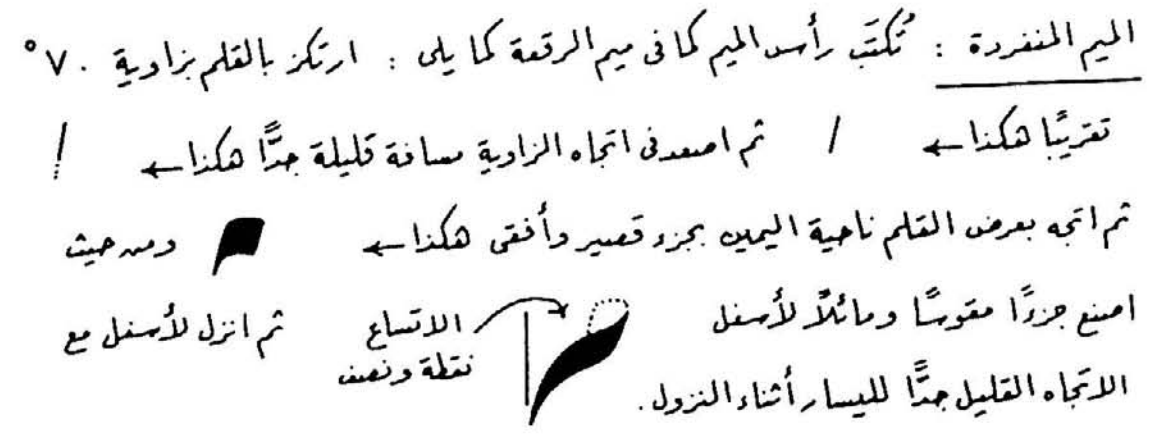 الميم المنفردة : تُكتَبُ رأس الميم كما فى ميم الرقعة كما يلى : ارتكز بالقلم بزاوية ٧٠°
تقريبًا هكذا ← ثم اصعد فى اتجاه الزاوية مسافة قليلة جدًّا هكذا ←
ثم اتجه بعرض القلم ناحية اليمين بجزء قصير وأفقى هكذا ← ومن حيث
اصنع جزءًا مقوسًا ومائلاً لأسفل الاتساع ثم انزل لأسفل مع
نقطة ونصف
الاتجاه القليل جدًّا لليسار أثناء النزول.